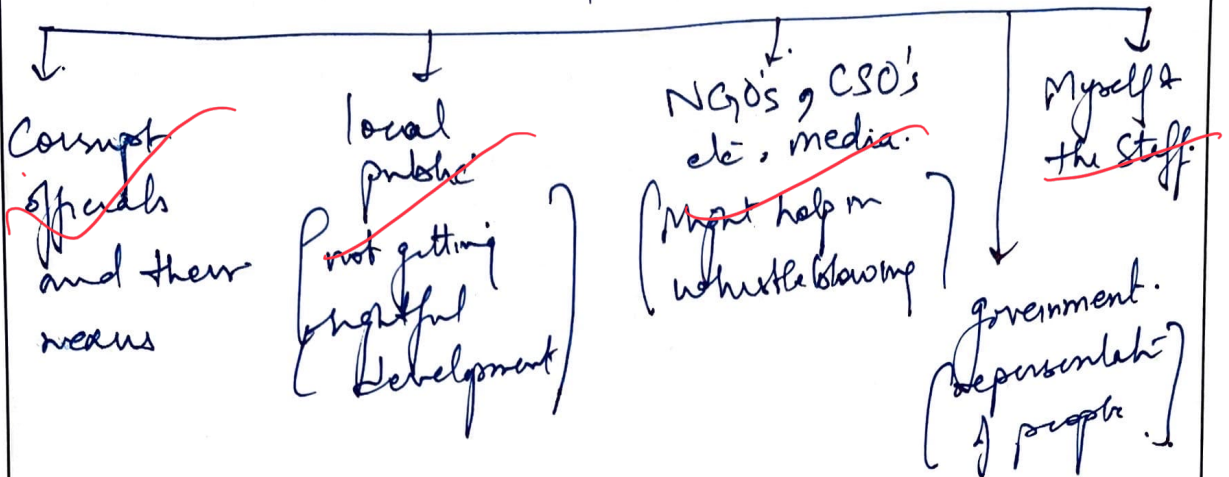 Corrupt
officials
and their
nexus
local
public
(not getting
rightful
development)
NGO's, CSO's
etc, media.
(Might help in
whistleblowing)
government.
(representati
of people)
Myself &
the Staff.